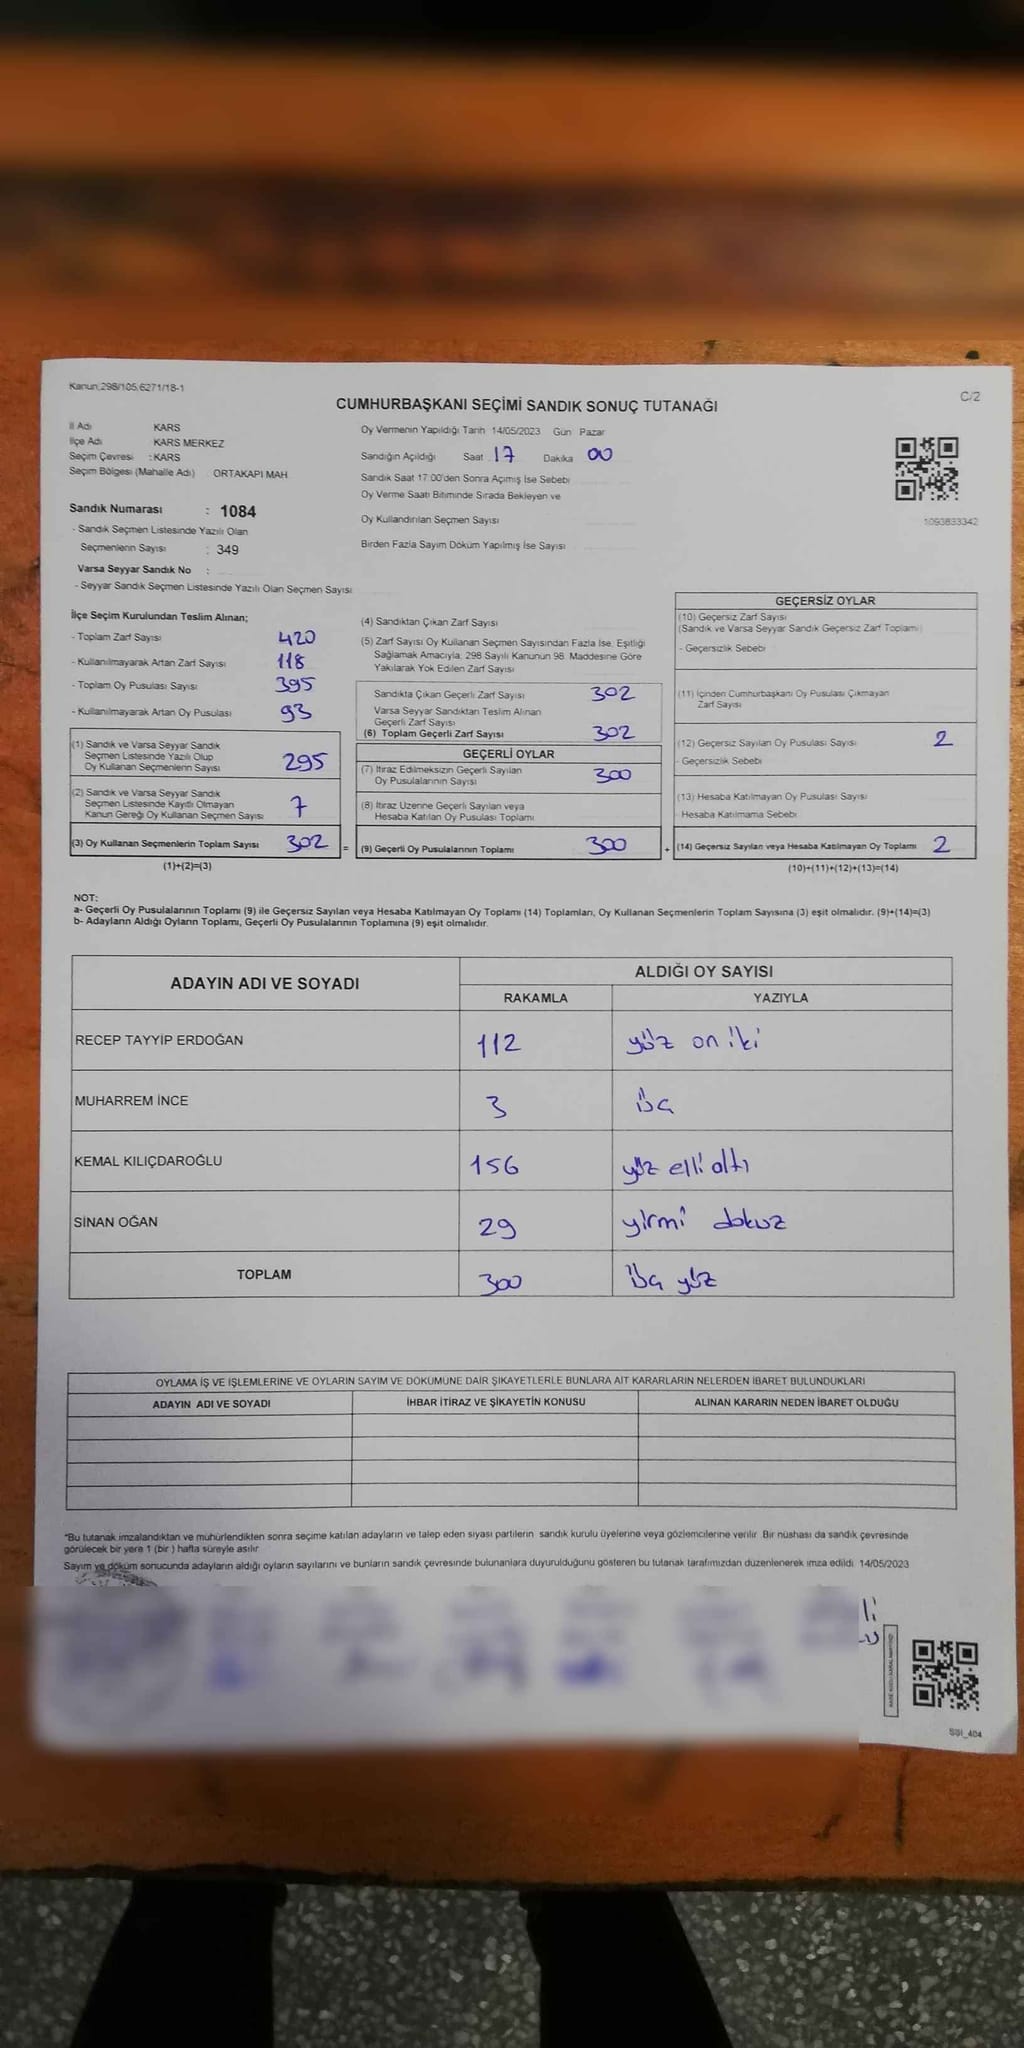 Kanun:298/105,6271/18-1
C/2
CUMHURBAŞKANI SEÇİMİ SANDIK SONUÇ TUTANAĞI
İl Adı KARS
İlçe Adı KARS MERKEZ
Seçim Çevresi : KARS
Seçim Bölgesi (Mahalle Adı) ORTAKAPI MAH
Sandık Numarası : 1084
- Sandık Seçmen Listesinde Yazılı Olan
Seçmenlerin Sayısı : 349
Varsa Seyyar Sandık No :
- Seyyar Sandık Seçmen Listesinde Yazılı Olan Seçmen Sayısı
Oy Vermenin Yapıldığı Tarih 14/05/2023 Gün Pazar
Sandığın Açıldığı Saat 17 Dakika 00
Sandık Saat 17:00'den Sonra Açımış İse Sebebi
Oy Verme Saati Bitiminde Sırada Bekleyen ve
Oy Kullandırılan Seçmen Sayısı
Birden Fazla Sayım Döküm Yapılmış İse Sayısı
1093833342
İlçe Seçim Kurulundan Teslim Alınan;
- Toplam Zarf Sayısı 420
- Kullanılmayarak Artan Zarf Sayısı 118
- Toplam Oy Pusulası Sayısı 395
- Kullanılmayarak Artan Oy Pusulası 93
(1) Sandık ve Varsa Seyyar Sandık
Seçmen Listesinde Yazılı Olup
Oy Kullanan Seçmenlerin Sayısı 295
(2) Sandık ve Varsa Seyyar Sandık
Seçmen Listesinde Kayıtlı Olmayan
Kanun Gereği Oy Kullanan Seçmen Sayısı 7
(3) Oy Kullanan Seçmenlerin Toplam Sayısı 302
(1)+(2)=(3)
(4) Sandıktan Çıkan Zarf Sayısı
(5) Zarf Sayısı Oy Kullanan Seçmen Sayısından Fazla İse, Eşitliği
Sağlamak Amacıyla, 298 Sayılı Kanunun 98. Maddesine Göre
Yakılarak Yok Edilen Zarf Sayısı
Sandıkta Çıkan Geçerli Zarf Sayısı 302
Varsa Seyyar Sandıktan Teslim Alınan
Geçerli Zarf Sayısı
(6) Toplam Geçerli Zarf Sayısı 302
GEÇERLİ OYLAR
(7) İtiraz Edilmeksizin Geçerli Sayılan
Oy Pusulalarının Sayısı 300
(8) İtiraz Üzerine Geçerli Sayılan veya
Hesaba Katılan Oy Pusulası Toplamı
= (9) Geçerli Oy Pusulalarının Toplamı 300 +
GEÇERSİZ OYLAR
(10) Geçersiz Zarf Sayısı
(Sandık ve Varsa Seyyar Sandık Geçersiz Zarf Toplamı)
- Geçersizlik Sebebi
(11) İçinden Cumhurbaşkanı Oy Pusulası Çıkmayan
Zarf Sayısı
(12) Geçersiz Sayılan Oy Pusulası Sayısı 2
- Geçersizlik Sebebi
(13) Hesaba Katılmayan Oy Pusulası Sayısı
- Hesaba Katılmama Sebebi
(14) Geçersiz Sayılan veya Hesaba Katılmayan Oy Toplamı 2
(10)+(11)+(12)+(13)=(14)
NOT:
a- Geçerli Oy Pusulalarının Toplamı (9) ile Geçersiz Sayılan veya Hesaba Katılmayan Oy Toplamı (14) Toplamları, Oy Kullanan Seçmenlerin Toplam Sayısına (3) eşit olmalıdır. (9)+(14)=(3)
b- Adayların Aldığı Oyların Toplamı, Geçerli Oy Pusulalarının Toplamına (9) eşit olmalıdır.
ADAYIN ADI VE SOYADI
ALDIĞI OY SAYISI
RAKAMLA YAZIYLA
RECEP TAYYİP ERDOĞAN 112 yüz on iki
MUHARREM İNCE 3 üç
KEMAL KILIÇDAROĞLU 156 yüz elli altı
SİNAN OĞAN 29 yirmi dokuz
TOPLAM 300 üç yüz
OYLAMA İŞ VE İŞLEMLERİNE VE OYLARIN SAYIM VE DÖKÜMÜNE DAİR ŞİKAYETLERLE BUNLARA AİT KARARLARIN NELERDEN İBARET BULUNDUKLARI
ADAYIN ADI VE SOYADI İHBAR İTİRAZ VE ŞİKAYETİN KONUSU ALINAN KARARIN NEDEN İBARET OLDUĞU
*Bu tutanak imzalandıktan ve mühürlendikten sonra seçime katılan adayların ve talep eden siyasi partilerin sandık kurulu üyelerine veya gözlemcilerine verilir. Bir nüshası da sandık çevresinde
görülecek bir yere 1 (bir ) hafta süreyle asılır.
Sayım ve döküm sonucunda adayların aldığı oyların sayılarını ve bunların sandık çevresinde bulunanlara duyurulduğunu gösteren bu tutanak tarafımızdan düzenlenerek imza edildi. 14/05/2023
SSI_404